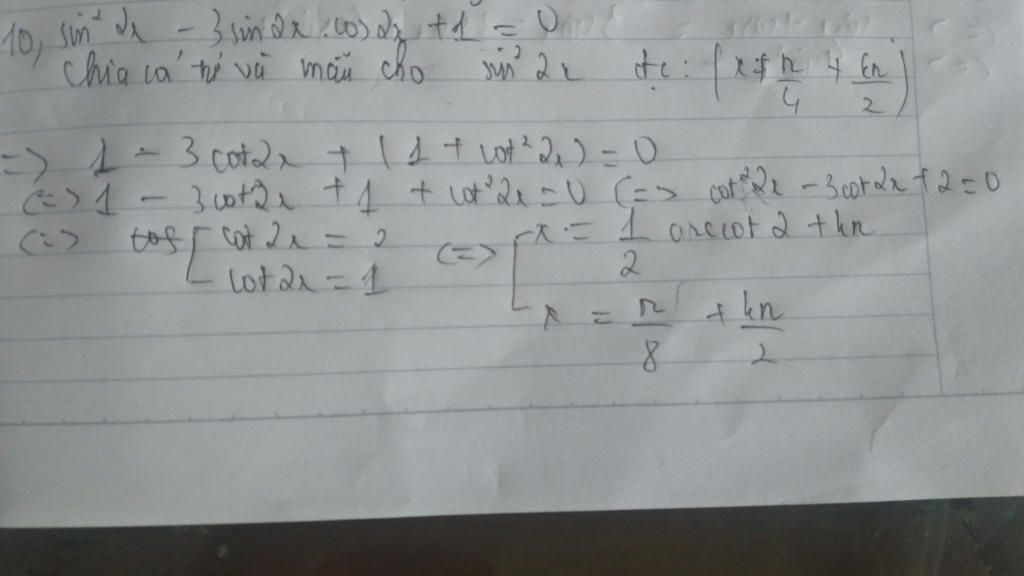 10, sin² 2x - 3 sin 2x . cos 2x + 1 = 0
Chia cả tử và mẫu cho sin² 2x đc : (x ≠ π/4 + kπ/2)
=> 1 - 3 cot 2x + (1 + cot² 2x) = 0
(=> 1 - 3 cot 2x + 1 + cot² 2x = 0 (=> cot² 2x - 3 cot 2x + 2 = 0
(=> [ cot 2x = 2 (=> [ x = 1/2 arccot 2 + kπ
cot 2x = 1
x = π/8 + kπ/2